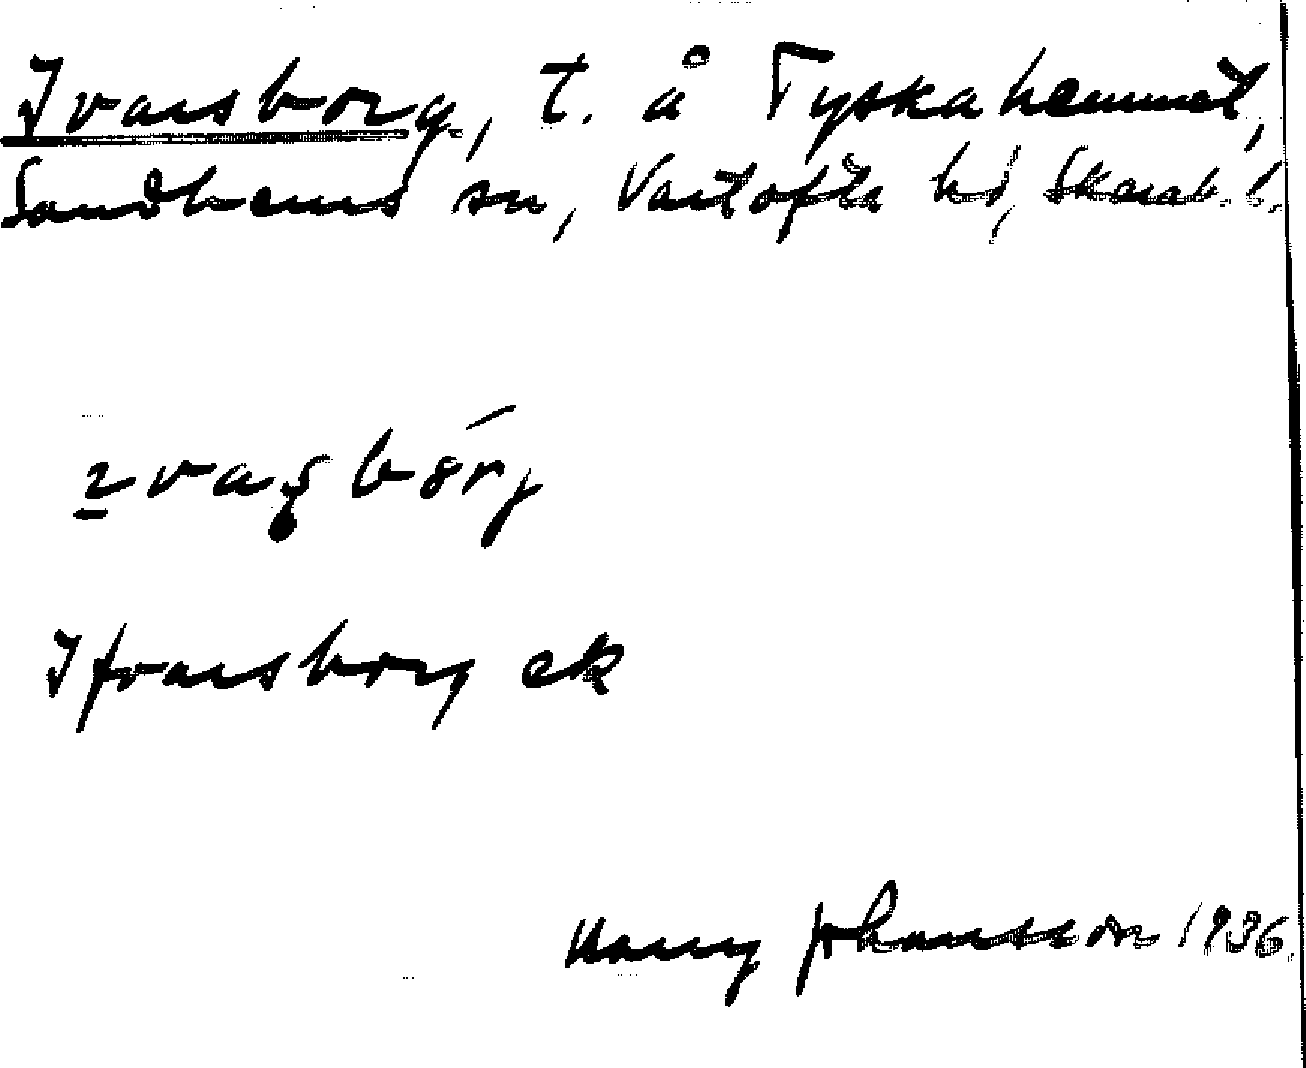 Ivarsborg, t. å Tyskahemmet,
Sandhems sn, Vartofta hd, Skarab. l.
ɪvaʂbórj
Ifvarsborg ek
Harry Johansson 1936.